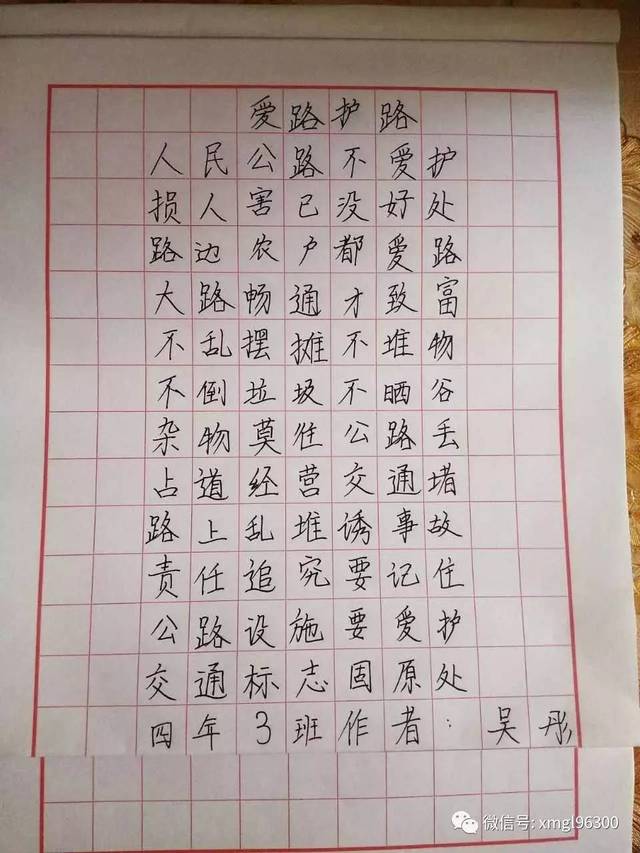 爱路护路
人民公路不爱护
损人害已没好处
路边农户都爱路
大路畅通才致富
不乱摆摊不堆物
不倒垃圾不晒谷
杂物莫往公路丢
占道经营交通堵
路上乱堆诱事故
责任追究要记住
公路设施要爱护
交通标志固原处
四年3班作者：吴彤
微信号: xmgl96300